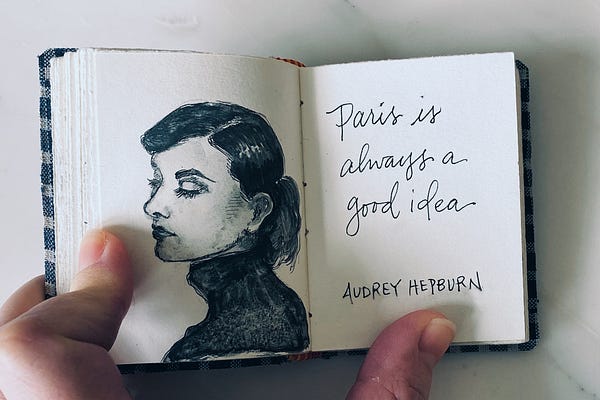 Paris is
always a
good idea
AUDREY HEPBURN